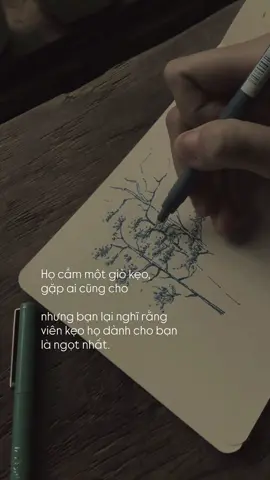 Họ cầm một giỏ kẹo,
gặp ai cũng cho
nhưng bạn lại nghĩ rằng
viên kẹo họ dành cho bạn
là ngọt nhất.